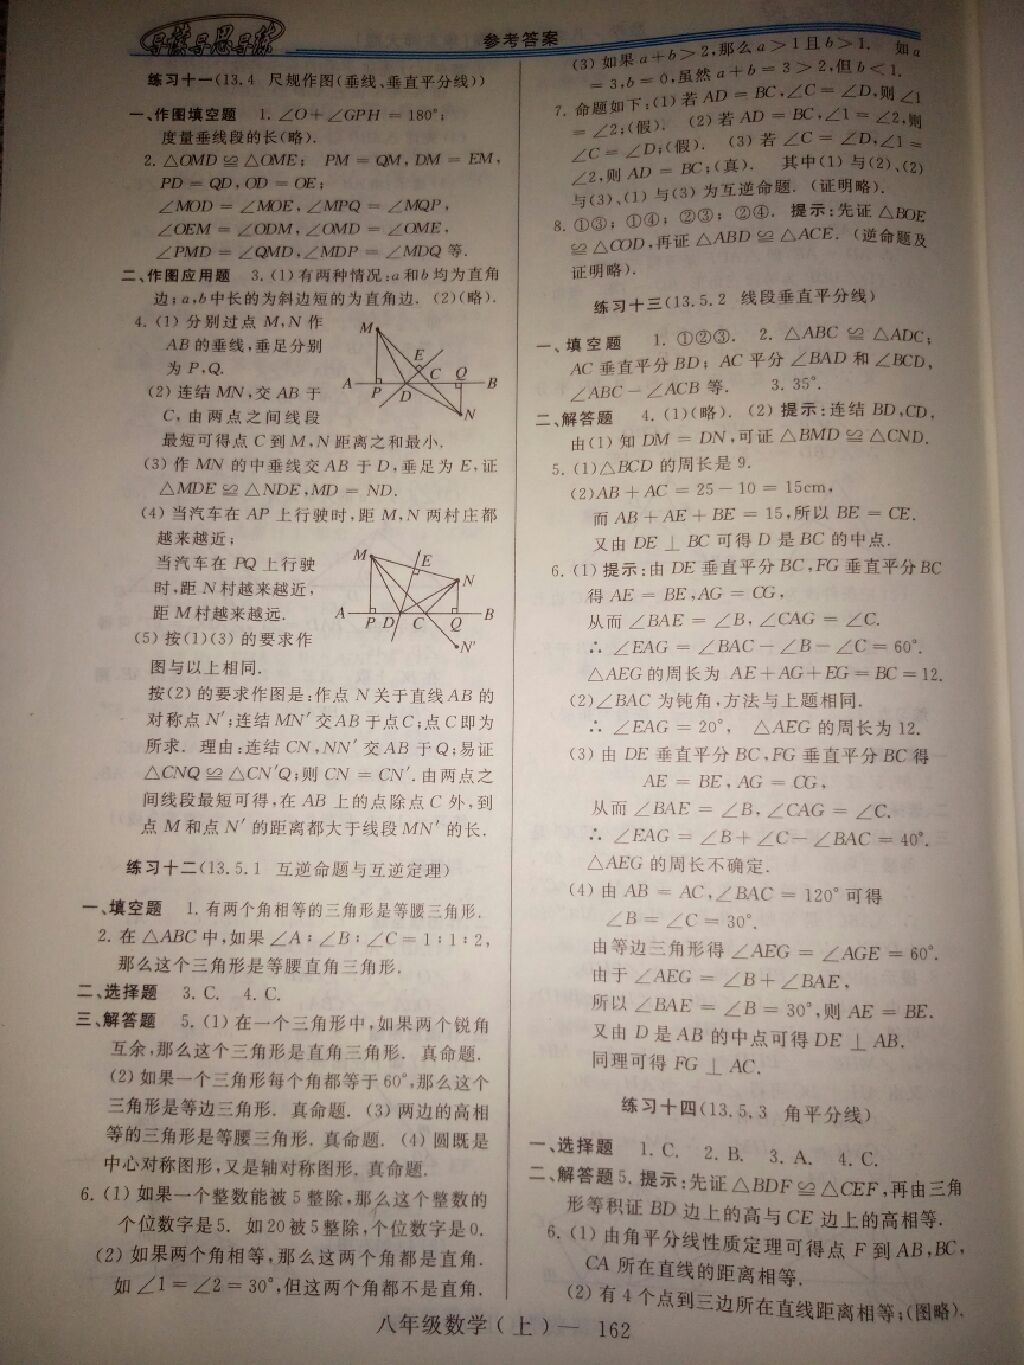 导读导思导练
参考答案
练习十一(13.4 尺规作图(垂线、垂直平分线))
一、作图填空题 1. ∠O+∠GPH=180°;
度量垂线段的长(略).
2. △OMD≌△OME; PM=QM,DM=EM,
PD=QD,OD=OE;
∠MOD=∠MOE,∠MPQ=∠MQP,
∠OEM=∠ODM,∠OMD=∠OME,
∠PMD=∠QMD,∠MDP=∠MDQ 等.
二、作图应用题 3. (1)有两种情况:a和b均为直角
边;a,b中长的为斜边短的为直角边. (2)(略).
4. (1) 分别过点 M,N 作
AB 的垂线,垂足分别
为 P,Q.
(2) 连结 MN,交 AB 于
C, 由两点之间线段
最短可得点 C 到 M,N 距离之和最小.
M
E
C
Q
A
P
D
B
N
(3) 作 MN 的中垂线交 AB 于 D,垂足为 E,证
△MDE≌△NDE,MD=ND.
(4) 当汽车在 AP 上行驶时,距 M,N 两村庄都
越来越近;
当汽车在 PQ 上行驶
时,距 N村越来越近,
距 M村越来越远.
M
E
N
A
P
D
C
Q
B
N′
(5) 按(1)(3) 的要求作
图与以上相同.
按(2) 的要求作图是:作点 N 关于直线 AB 的
对称点 N′;连结 MN′ 交 AB 于点C;点 C即为
所求. 理由:连结 CN,NN′ 交 AB 于 Q;易证
△CNQ≌△CN′Q;则 CN=CN′.由两点之
间线段最短可得,在 AB 上的点除点 C 外,到
点 M 和点 N′ 的距离都大于线段 MN′ 的长.
练习十二(13.5.1 互逆命题与互逆定理)
一、填空题 1. 有两个角相等的三角形是等腰三角形.
2. 在 △ABC 中,如果 ∠A∶∠B∶∠C=1∶1∶2,
那么这个三角形是等腰直角三角形.
二、选择题 3. C. 4. C.
三、解答题 5. (1) 在一个三角形中,如果两个锐角
互余,那么这个三角形是直角三角形. 真命题.
(2) 如果一个三角形每个角都等于60°,那么这个
三角形是等边三角形. 真命题. (3) 两边的高相
等的三角形是等腰三角形. 真命题. (4) 圆既是
中心对称图形,又是轴对称图形. 真命题.
6. (1) 如果一个整数能被 5 整除,那么这个整数的
个位数字是5. 如20被5整除,个位数字是0.
(2) 如果两个角相等,那么这两个角都是直角.
如 ∠1=∠2=30°,但这两个角都不是直角.
(3) 如果 a+b>2,那么 a>1 且 b>1. 如a
=3,b=0,虽然 a+b=3>2,但 b<1.
7. 命题如下:(1) 若 AD=BC,∠C=∠D,则∠1
=∠2;(假). (2) 若 AD=BC,∠1=∠2,则
∠C=∠D;(假). (3) 若 ∠C=∠D,∠1=
∠2,则 AD=BC;(真). 其中(1) 与(2)、(2)
与(3)、(1) 与(3) 为互逆命题. (证明略).
8. ①③; ①④; ②③; ②④. 提示:先证 △BOE
≌△COD,再证 △ABD≌△ACE. (逆命题及
证明略).
练习十三(13.5.2 线段垂直平分线)
一、填空题 1. ①②③. 2. △ABC≌△ADC;
AC 垂直平分 BD; AC 平分 ∠BAD 和 ∠BCD,
∠ABC-∠ACB 等. 3. 35°.
二、解答题 4. (1)(略). (2) 提示:连结 BD,CD,
由(1) 知 DM=DN,可证 △BMD≌△CND.
5. (1)△BCD 的周长是 9.
(2)AB+AC=25-10=15cm,
而 AB+AE+BE=15,所以 BE=CE.
又由 DE⊥BC 可得 D 是 BC 的中点.
6. (1) 提示:由 DE 垂直平分 BC,FG 垂直平分 BC
得 AE=BE,AG=CG,
从而 ∠BAE=∠B,∠CAG=∠C.
∴ ∠EAG=∠BAC-∠B-∠C=60°.
△AEG 的周长为 AE+AG+EG=BC=12.
(2)∠BAC 为钝角,方法与上题相同.
∴ ∠EAG=20°, △AEG 的周长为 12.
(3) 由 DE 垂直平分 BC,FG 垂直平分 BC 得
AE=BE,AG=CG,
从而 ∠BAE=∠B,∠CAG=∠C.
∴ ∠EAG=∠B+∠C-∠BAC=40°.
△AEG 的周长不确定.
(4) 由 AB=AC,∠BAC=120° 可得
∠B=∠C=30°.
由等边三角形得 ∠AEG=∠AGE=60°.
由于 ∠AEG=∠B+∠BAE,
所以 ∠BAE=∠B=30°,则 AE=BE.
又由 D 是 AB 的中点可得 DE⊥AB.
同理可得 FG⊥AC.
练习十四(13.5.3 角平分线)
一、选择题 1. C. 2. B. 3. A. 4. C.
二、解答题5. 提示:先证 △BDF≌△CEF,再由三角
形等积证 BD 边上的高与 CE 边上的高相等.
6. (1) 由角平分线性质定理可得点 F 到 AB,BC,
CA 所在直线的距离相等.
(2) 有 4 个点到三边所在直线距离相等;(图略).
八年级数学(上)— 162